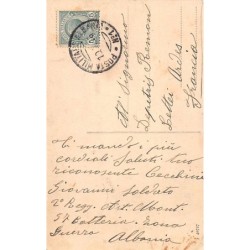 POSTA MILITARE
Al Signorino
Demetris Remon
Francia
Ti mando i più
cordiali saluti tuo
riconoscente Cecchini
Giovanni soldato
2° Regg. Art. Mont.
57 batteria Zona
Guerra Albania